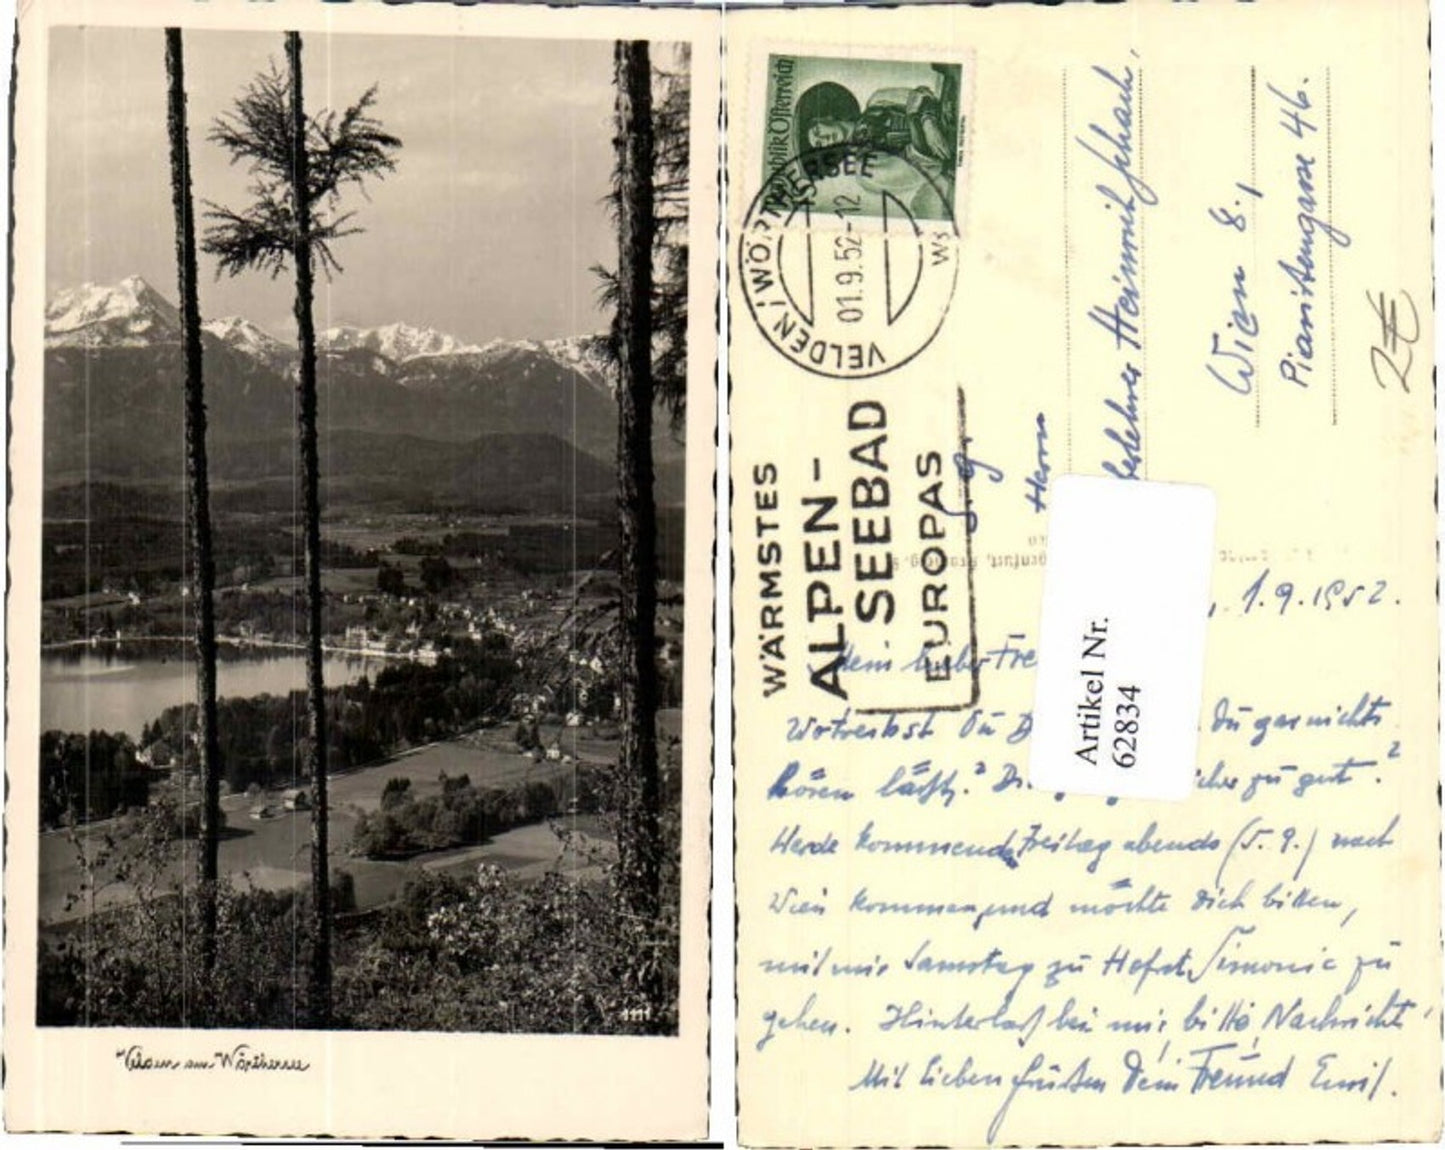 1111
Velden am Wörthersee
Republik Österreich
VELDEN / WÖRTHERSEE
01.9.52-12
WÄRMSTES
ALPEN-
SEEBAD
EUROPAS
Herrn
Heinrich
Wien 8.,
Piaristengasse 46.
2€
Artikel Nr.
62834
1.9.1952.
Mein lieber Fre
Du Du gar nichts
hören läßt? zu gut.?
Werde kommenden Freitag abends (5.9.) nach
Wien kommen und möchte Dich bitten,
mit mir Samstag zu Hofrat Simonic zu
gehen. Hinterlaß bei mir, bitte, Nachricht!
Mit lieben Grüßen Dein Freund Emil.